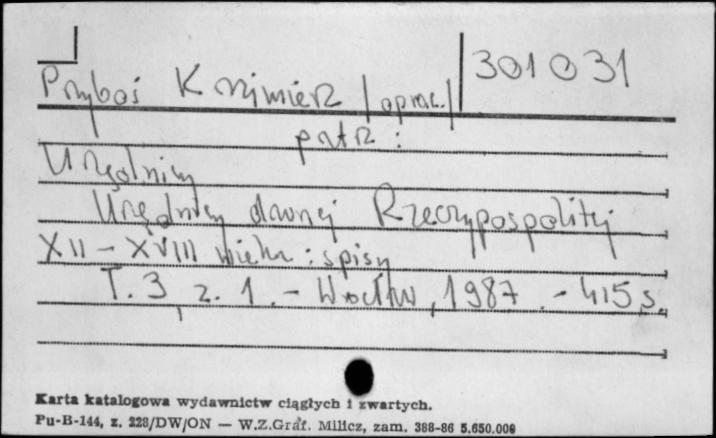 301031
Przyboś Kazimierz /oprac./
patrz:
Urzędnicy
Urzędnicy dawnej Rzeczypospolitej
XII - XVIII wieku : spisy
T. 3, z. 1. - Wrocław, 1987. - 415 s.
Karta katalogowa wydawnictw ciągłych i zwartych.
Pu-B-144, z. 228/DW/ON — W.Z.Graf. Milicz, zam. 388-86 5.650.000